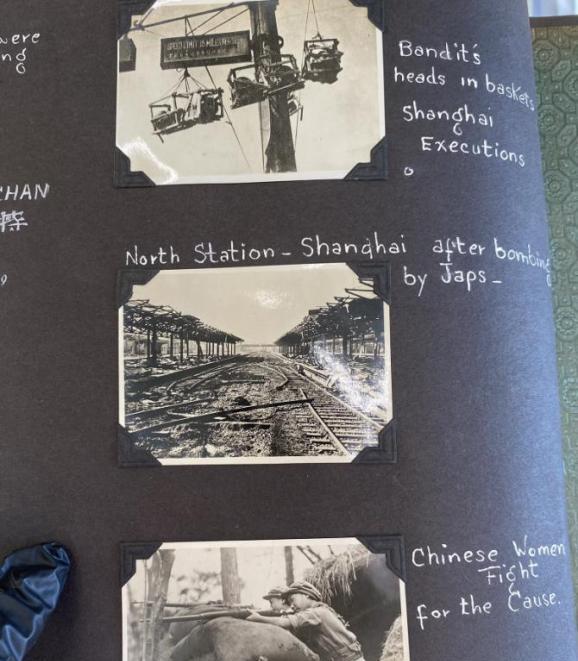 were
ng
Bandit's
heads in baskets
Shanghai
Executions
CHAN
9
North Station - Shanghai after bombing
by Japs -
Chinese Women
Fight
for the Cause.